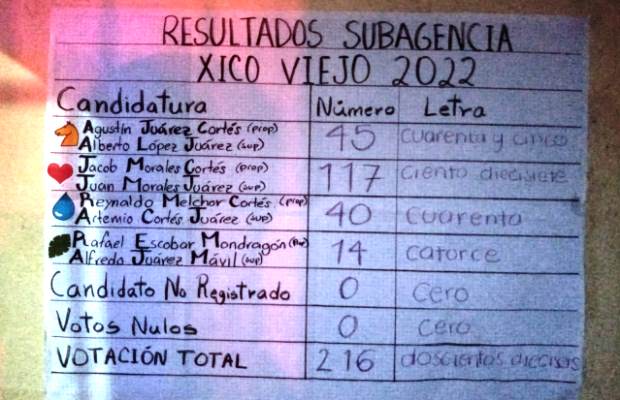 RESULTADOS SUBAGENCIA
XICO VIEJO 2022
Candidatura Número Letra
Agustín Juárez Cortés (prop)
Alberto López Juárez (sup) 45 cuarenta y cinco
Jacob Morales Cortés (prop)
Juan Morales Juárez (sup) 117 ciento diecisiete
Reynaldo Melchor Cortés (prop)
Artemio Cortés Juárez (sup) 40 cuarenta
Rafael Escobar Mondragón
Alfredo Juárez Mávil (sup) 14 catorce
Candidato No Registrado 0 cero
Votos Nulos 0 cero
VOTACIÓN TOTAL 216 doscientos